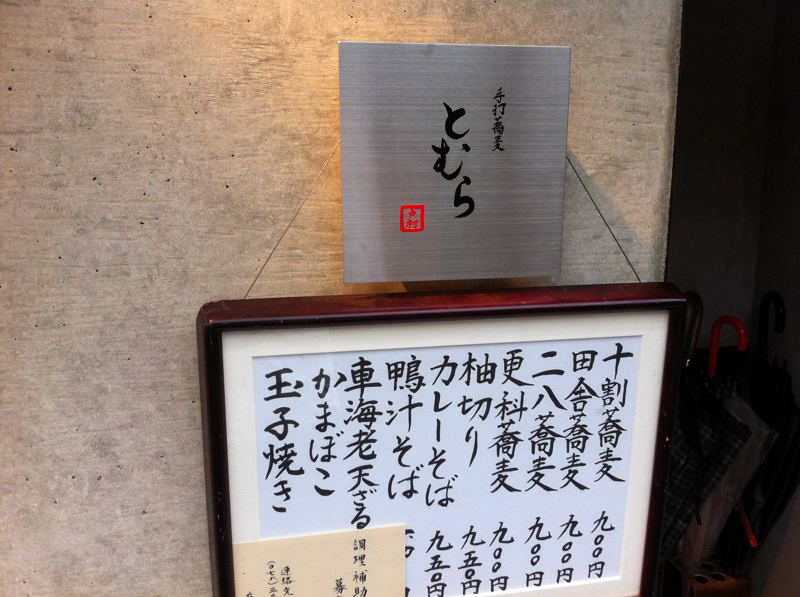 手打蕎麦
とむら
戸村
十割蕎麦 九〇〇円
田舎蕎麦 九〇〇円
二八蕎麦 九〇〇円
更科蕎麦 九〇〇円
柚切り 九五〇円
カレーそば 九五〇円
鴨汁そば
車海老天ざる
かまぼこ
玉子焼き
調理補助
募
連絡先